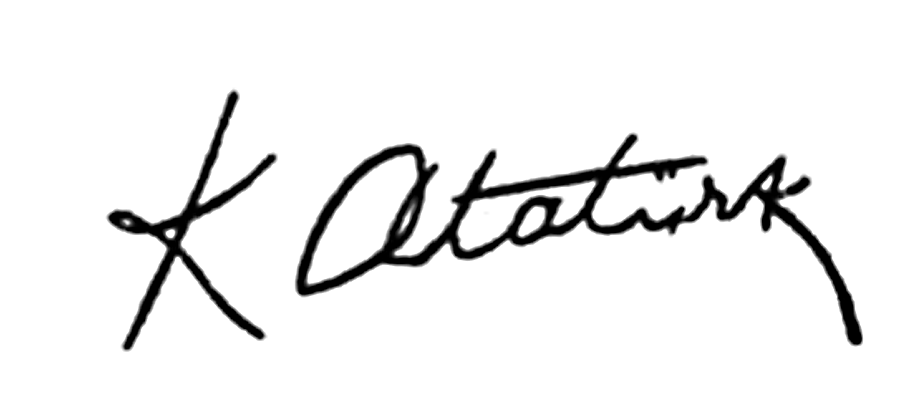 K Atatürk